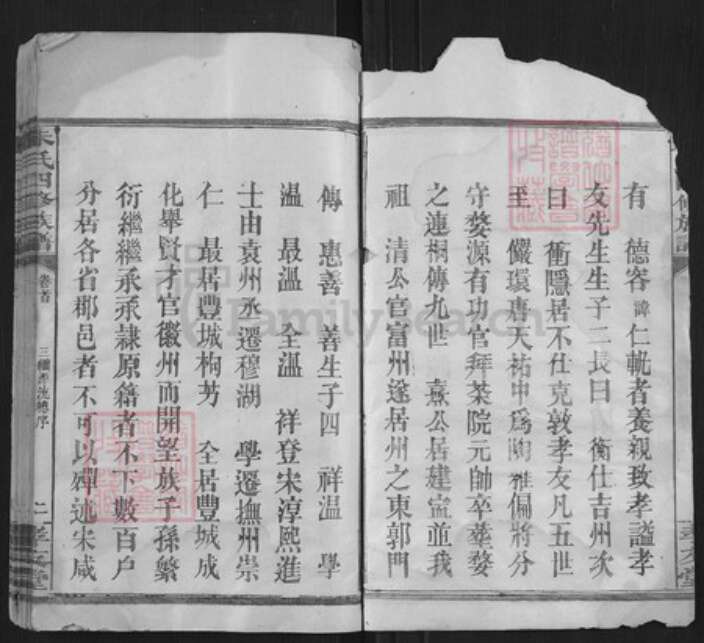 有　德容諱仁軌者養親致孝謚孝
友先生生子二長曰　衡仕吉州次
曰　衝隱居不仕克敦孝友凡五世
至　儼環唐天祐中為陶雅偏將分
守婺源有功官拜茶院元帥卒葬婺
之連桐傳九世　熹公居建寧並我
祖　清公官富州遂居州之東郭門
傳　惠善　善生子四　祥溫　學
溫　最溫　全溫　祥登宋淳熙進
士由袁州丞遷穆湖　學遷撫州崇
仁　最居豐城桐芳　全居豐城成
化舉賢才官徽州而開望族子孫繁
衍繼繼承承隸原籍者不下數百戶
分居各省郡邑者不可以殫述宋咸
朱氏四修族譜
卷首
三
序
二
堂
修族譜
堂
FamilySearch